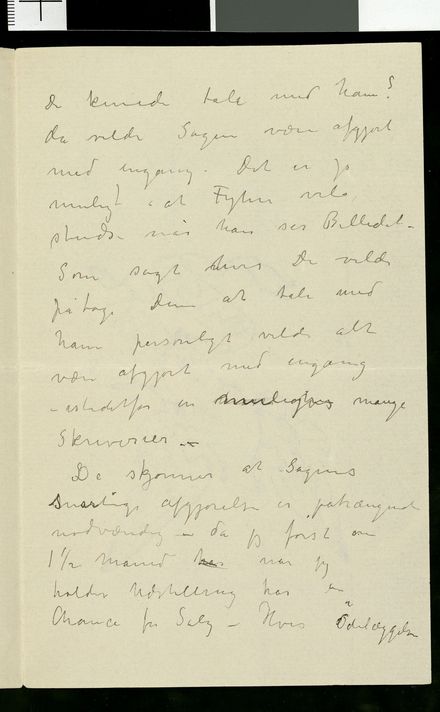 De kunde tale med ham?
da vilde Sagen være afgjort
med engang. Det er jo
muligt at Fyhn vil
studse når han ser Billedet –
Som sagt hvis De vilde
påtage Dem at tale med
ham personligt vilde alt
være afgjort med engang
– istedetfor en mange
Skriverier –
De skjønner at Sagens
snarlige afgjørelse er påtrængende
nødvændig – da jeg først om
1½ Måned når jeg
holder Udstilling har en
Chance for Salg – Hvis Ødelæggelsen